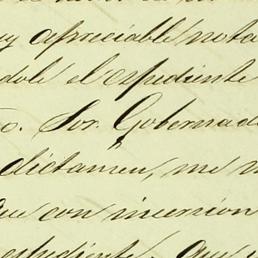 uy apreciable nota
dole el espediente
o. Sor. Gobernado
dictamen, me
que con incersion
espediente, que